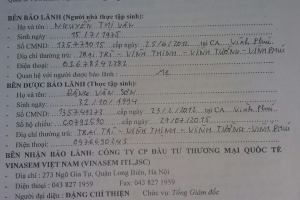 BÊN BẢO LÃNH (Người nhà thực tập sinh):
- Họ và tên : NGUYỄN THỊ VÂN
- Sinh ngày : 15/7/1975
- Số CMND: cấp ngày: 25/6/2012 tại CA Vĩnh Phúc
- Địa chỉ thường trú: TRẠI TRÌ - VĨNH THỊNH - VĨNH TƯỜNG - VĨNH PHÚC
- Điện thoại:
- Quan hệ với người được bảo lãnh : Mẹ
BÊN ĐƯỢC BẢO LÃNH (Thực tập sinh):
- Họ và tên : ĐẶNG VĂN SƠN
- Sinh ngày : /10/1994
- Số CMND: cấp ngày: tại CA Vĩnh Phúc
- Số hộ chiếu: cấp ngày:
- Địa chỉ thường trú: TRẠI TRÌ - VĨNH THỊNH - VĨNH TƯỜNG - VĨNH PHÚC
- Điện thoại:
BÊN NHẬN BẢO LÃNH: CÔNG TY CP ĐẦU TƯ THƯƠNG MẠI QUỐC TẾ
VINASEM VIỆT NAM (VINASEM ITI.,JSC)
- Địa chỉ : 273 Ngô Gia Tự, Quận Long Biên, Hà Nội
- Điện thoại : 043 827 1959 Fax : 043 827 1959
- Người đại diện : ĐẶNG CHÍ THIỆN Chức vụ : Tổng Giám đốc